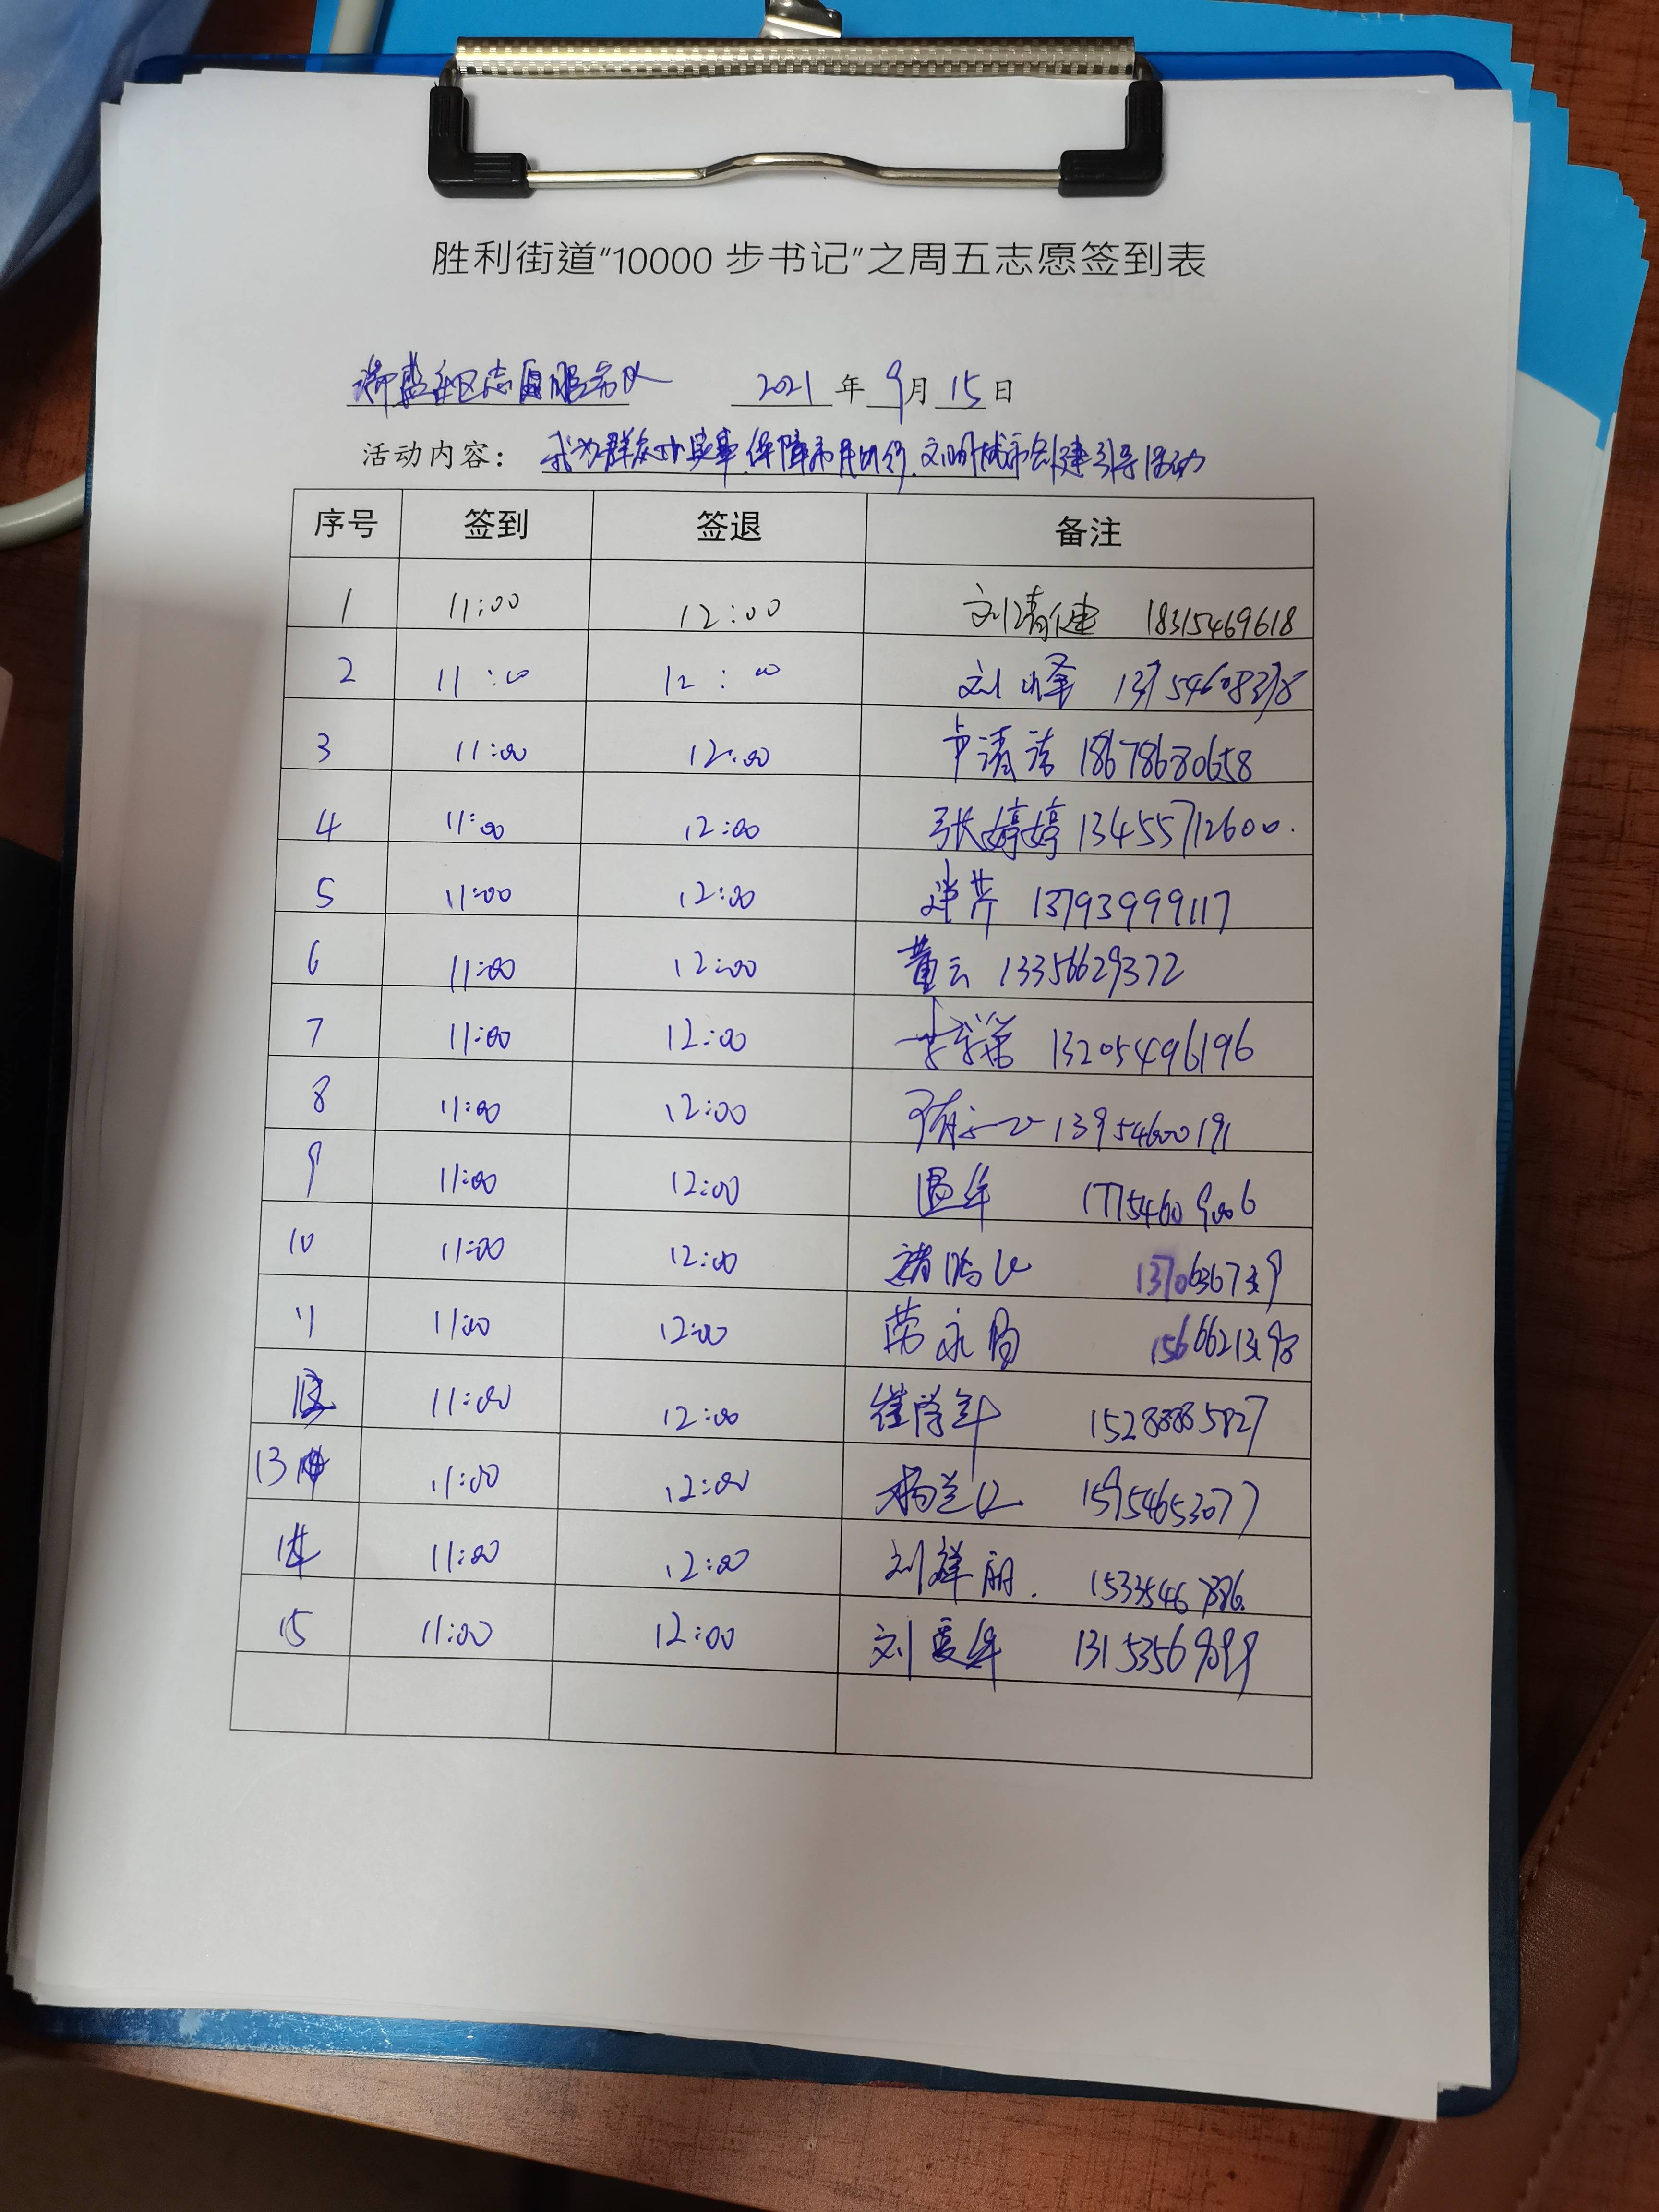 胜利街道“10000 步书记”之周五志愿签到表
社区志愿服务队 2021 年 9 月 15 日
活动内容： 我为群众办实事、保障市民出行、文明城市创建引导活动
序号 签到 签退 备注
1 11:00 12:00 刘清健 18315469618
2 11:00 12:00 刘峰 13754608378
3 11:00 12:00 卢清洁 18678680658
4 11:00 12:00 张婷婷 13455712600.
5 11:00 12:00 13793999117
6 11:00 12:00 董云 13356629372
7 11:00 12:00 13205496196
8 11:00 12:00 13954600191
9 11:00 12:00
10 11:00 12:00
11 11:00 12:00
12 11:00 12:00 崔学军
13 11:00 12:00 15954653077
14 11:00 12:00 刘祥丽.
15 11:00 12:00 刘爱华